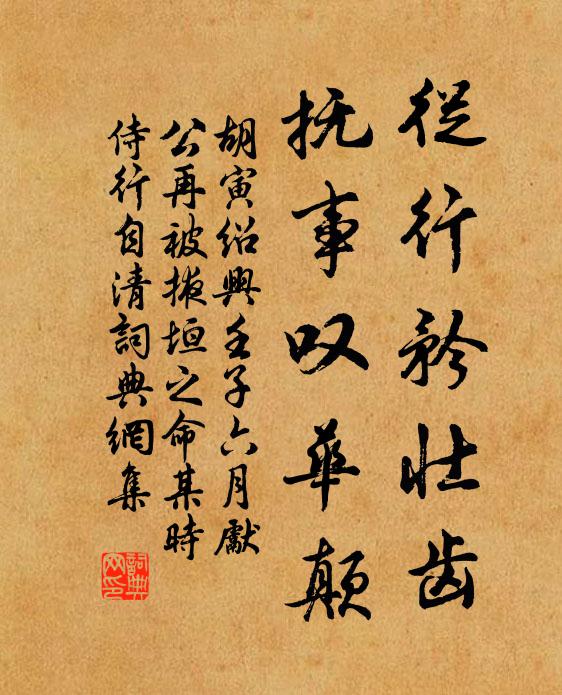 從行矜壮齿
抚事叹華颠
胡寅紹興壬子六月獻
公再被掖垣之命某時
侍行自清詞典網集
詞典
网印